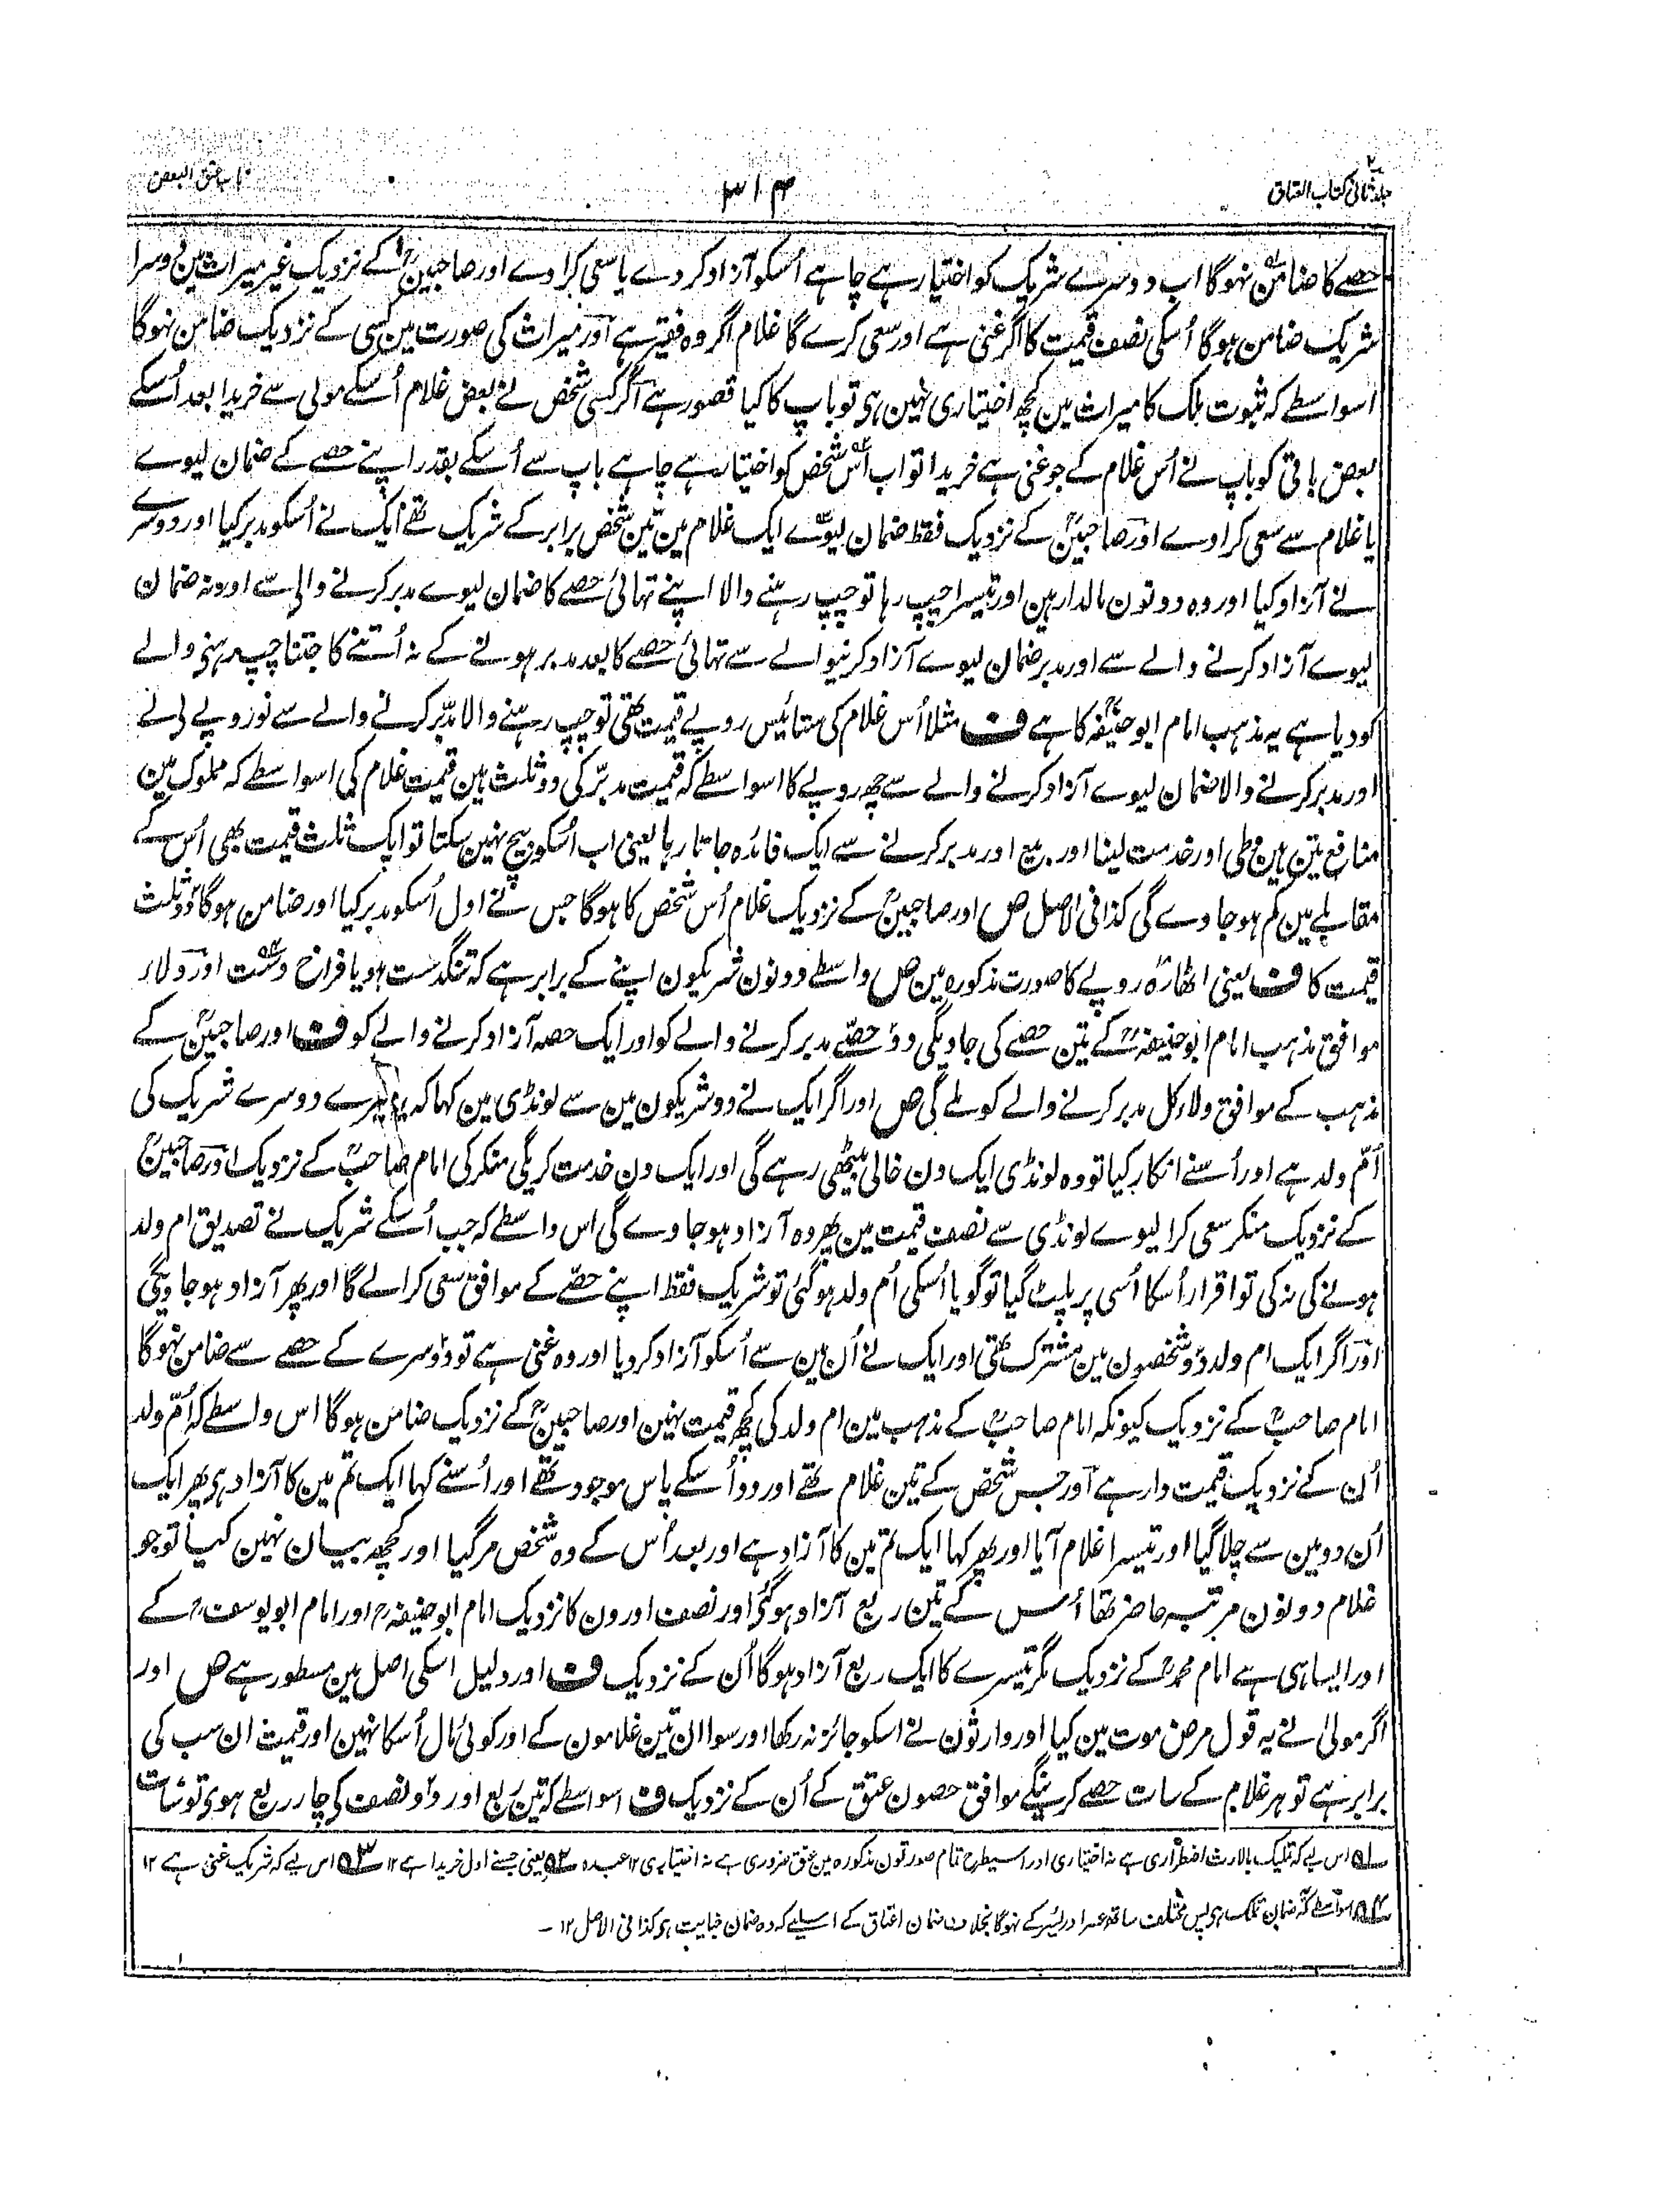 جلد ثانی کتاب العتاق
۳۱۴
باب عتق البعض
حصے کا ضامن نہوگا اب دوسرے شریک کو اختیار ہے چاہے اُسکو آزاد کردے یا سعی کراوے اور صاحبینؒ کے نزدیک غیر میراث مین دوسرا
شریک ضامن ہوگا اُسکی نصف قیمت کا اگر غنی ہے اور سعی کرے گا غلام اگر وہ فقیر ہے اور میراث کی صورت مین کسی کے نزدیک ضامن نہوگا
اسواسطے کہ ثبوت ملک کا میراث مین کچھ اختیاری نہین ہی تو باپ کا کیا قصور ہے اگر کسی شخص نے بعض غلام اُسکے مولی سے خریدا بعد اُسکے
بعض باقی کو باپ نے اُس غلام کے جو غنی ہے خریدا تو اب اُس شخص کو اختیار ہے چاہے باپ سے اُسکے بقدر اپنے حصے کے ضمان لیوے
یا غلام سے سعی کراوے اور صاحبینؒ کے نزدیک فقط ضمان لیوے ایک غلام مین تین شخص برابر کے شریک تھے ایک نے اُسکو مدبر کیا اور دوسرے
نے آزاد کیا اور وہ دونون مالدار ہین اور تیسرا چپ رہا تو چپ رہنے والا اپنے تہائی حصے کا ضمان لیوے مدبر کرنے والی سے اور نہ ضمان
لیوے آزاد کرنے والے سے اور مدبر ضمان لیوے آزاد کرنیوالے سے تہائی حصے کا بعد مدبر ہونے کے نہ اُتنے کا جتنا چپ رہنی والے
کو دیا ہے یہ مذہب امام ابوحنیفہؒ کا ہے ف مثلا اُس غلام کی ستائیس روپے قیمت تھی تو چپ رہنے والا مدبّر کرنے والے سے نو روپے لے لے
اور مدبر کرنے والا ضمان لیوے آزاد کرنے والے سے چھ روپے کا اسواسطے کہ قیمت مدبّر کی دو ثلث ہین قیمت غلام کی اسواسطے کہ مملوک مین
منافع تین ہین وطی اور خدمت لینا اور بیع اور مدبر کرنے سے ایک فائدہ جاتا رہا یعنی اب اُسکو بیچ نہین سکتا تو ایک ثلث قیمت بھی اُس کے
مقابلے مین کم ہو جاوے گی کذا فی الاصل ص اور صاحبینؒ کے نزدیک غلام اُس شخص کا ہوگا جس نے اول اُسکو مدبر کیا اور ضامن ہوگا دو ثلث
قیمت کا ف یعنی اٹھارہ روپے کا صورت مذکورہ مین ص واسطے دونون شریکون اپنے کے برابر ہے کہ تنگدست ہو یا فراخ دست اور ولاء
موافق مذہب امام ابوحنیفہؒ کے تین حصے کی جاویگی دو حصّے مدبر کرنے والے کو اور ایک حصہ آزاد کرنے والے کو ف اور صاحبینؒ کے
مذہب کے موافق ولاء کل مدبر کرنے والے کو ملے گی ص اور اگر ایک نے دو شریکون مین سے لونڈی مین کہا کہ یہ میرے دوسرے شریک کی
اُمّ ولد ہے اور اُسنے انکار کیا تو وہ لونڈی ایک دن خالی بیٹھی رہے گی اور ایک دن خدمت کریگی منکر کی امام صاحبؒ کے نزدیک اور صاحبینؒ
کے نزدیک منکر سعی کرا لیوے لونڈی سے نصف قیمت مین پھر وہ آزاد ہو جاوے گی اس واسطے کہ جب اُسکے شریک نے تصدیق ام ولد
ہونے کی نہ کی تو اقرار اُسکا اُسی پر پلٹ گیا تو گویا اُسکی اُم ولد ہو گئی تو شریک فقط اپنے حصّے کے موافق سعی کرالے گا اور پھر آزاد ہو جاویگی
اور اگر ایک ام ولد دو شخصون مین مشترک تھی اور ایک نے اُن مین سے اُسکو آزاد کردیا اور وہ غنی ہے تو دوسرے کے حصے سے ضامن نہوگا
امام صاحبؒ کے نزدیک کیونکہ امام صاحبؒ کے مذہب مین ام ولد کی کچھ قیمت نہین اور صاحبینؒ کے نزدیک ضامن ہوگا اس واسطے کہ اُمّ ولد
اُن کے نزدیک قیمت دار ہے اور جس شخص کے تین غلام تھے اور دو اُسکے پاس موجود تھے اور اُسنے کہا ایک تم مین کا آزاد ہی پھر ایک
اُن دو مین سے چلا گیا اور تیسرا غلام آیا اور پھر کہا ایک تم مین کا آزاد ہے اور بعد اُس کے وہ شخص مر گیا اور کچھ بیان نہین کیا تو جو
غلام دونون مرتبہ حاضر تھا اُس کے تین ربع آزاد ہو گئے اور نصف اورون کا نزدیک امام ابوحنیفہؒ اور امام ابویوسفؒ کے
اور ایسا ہی ہے امام محمدؒ کے نزدیک مگر تیسرے کا ایک ربع آزاد ہوگا اُن کے نزدیک ف اور دلیل اسکی اصل مین مسطور ہے ص اور
اگر مولیٰ نے یہ قول مرض موت مین کیا اور وارثون نے اسکو جائز نہ رکھا اور سوا ان تین غلامون کے اور کوئی مال اُسکا نہین اور قیمت ان سب کی
برابر ہے تو ہر غلام کے سات حصے کرینگے موافق حصون عتق کے اُن کے نزدیک ف اسواسطے کہ تین ربع اور دو نصف کی چار ربع ہوی تو سات
۱؎ اس لیے کہ تملیک بالارث اضطراری ہے نہ اختیاری اور اسیطرح تمام صورتون مذکورہ مین عتق ضروری ہے نہ اختیاری ۱۲ عبدہ ۲؎ یعنی جسنے اول خریدا ہے ۱۲ ۳؎ اس لیے کہ شریک غنی ہے ۱۲
۴؎ اسواسطے کہ ضمان تملک ہی پس مختلف ساتھ عسر اور یسر کے نہوگا بخلاف ضمان اعتاق کے اسلیے کہ وہ ضمان جنایت ہی کذا فی الاصل ۱۲ ـ